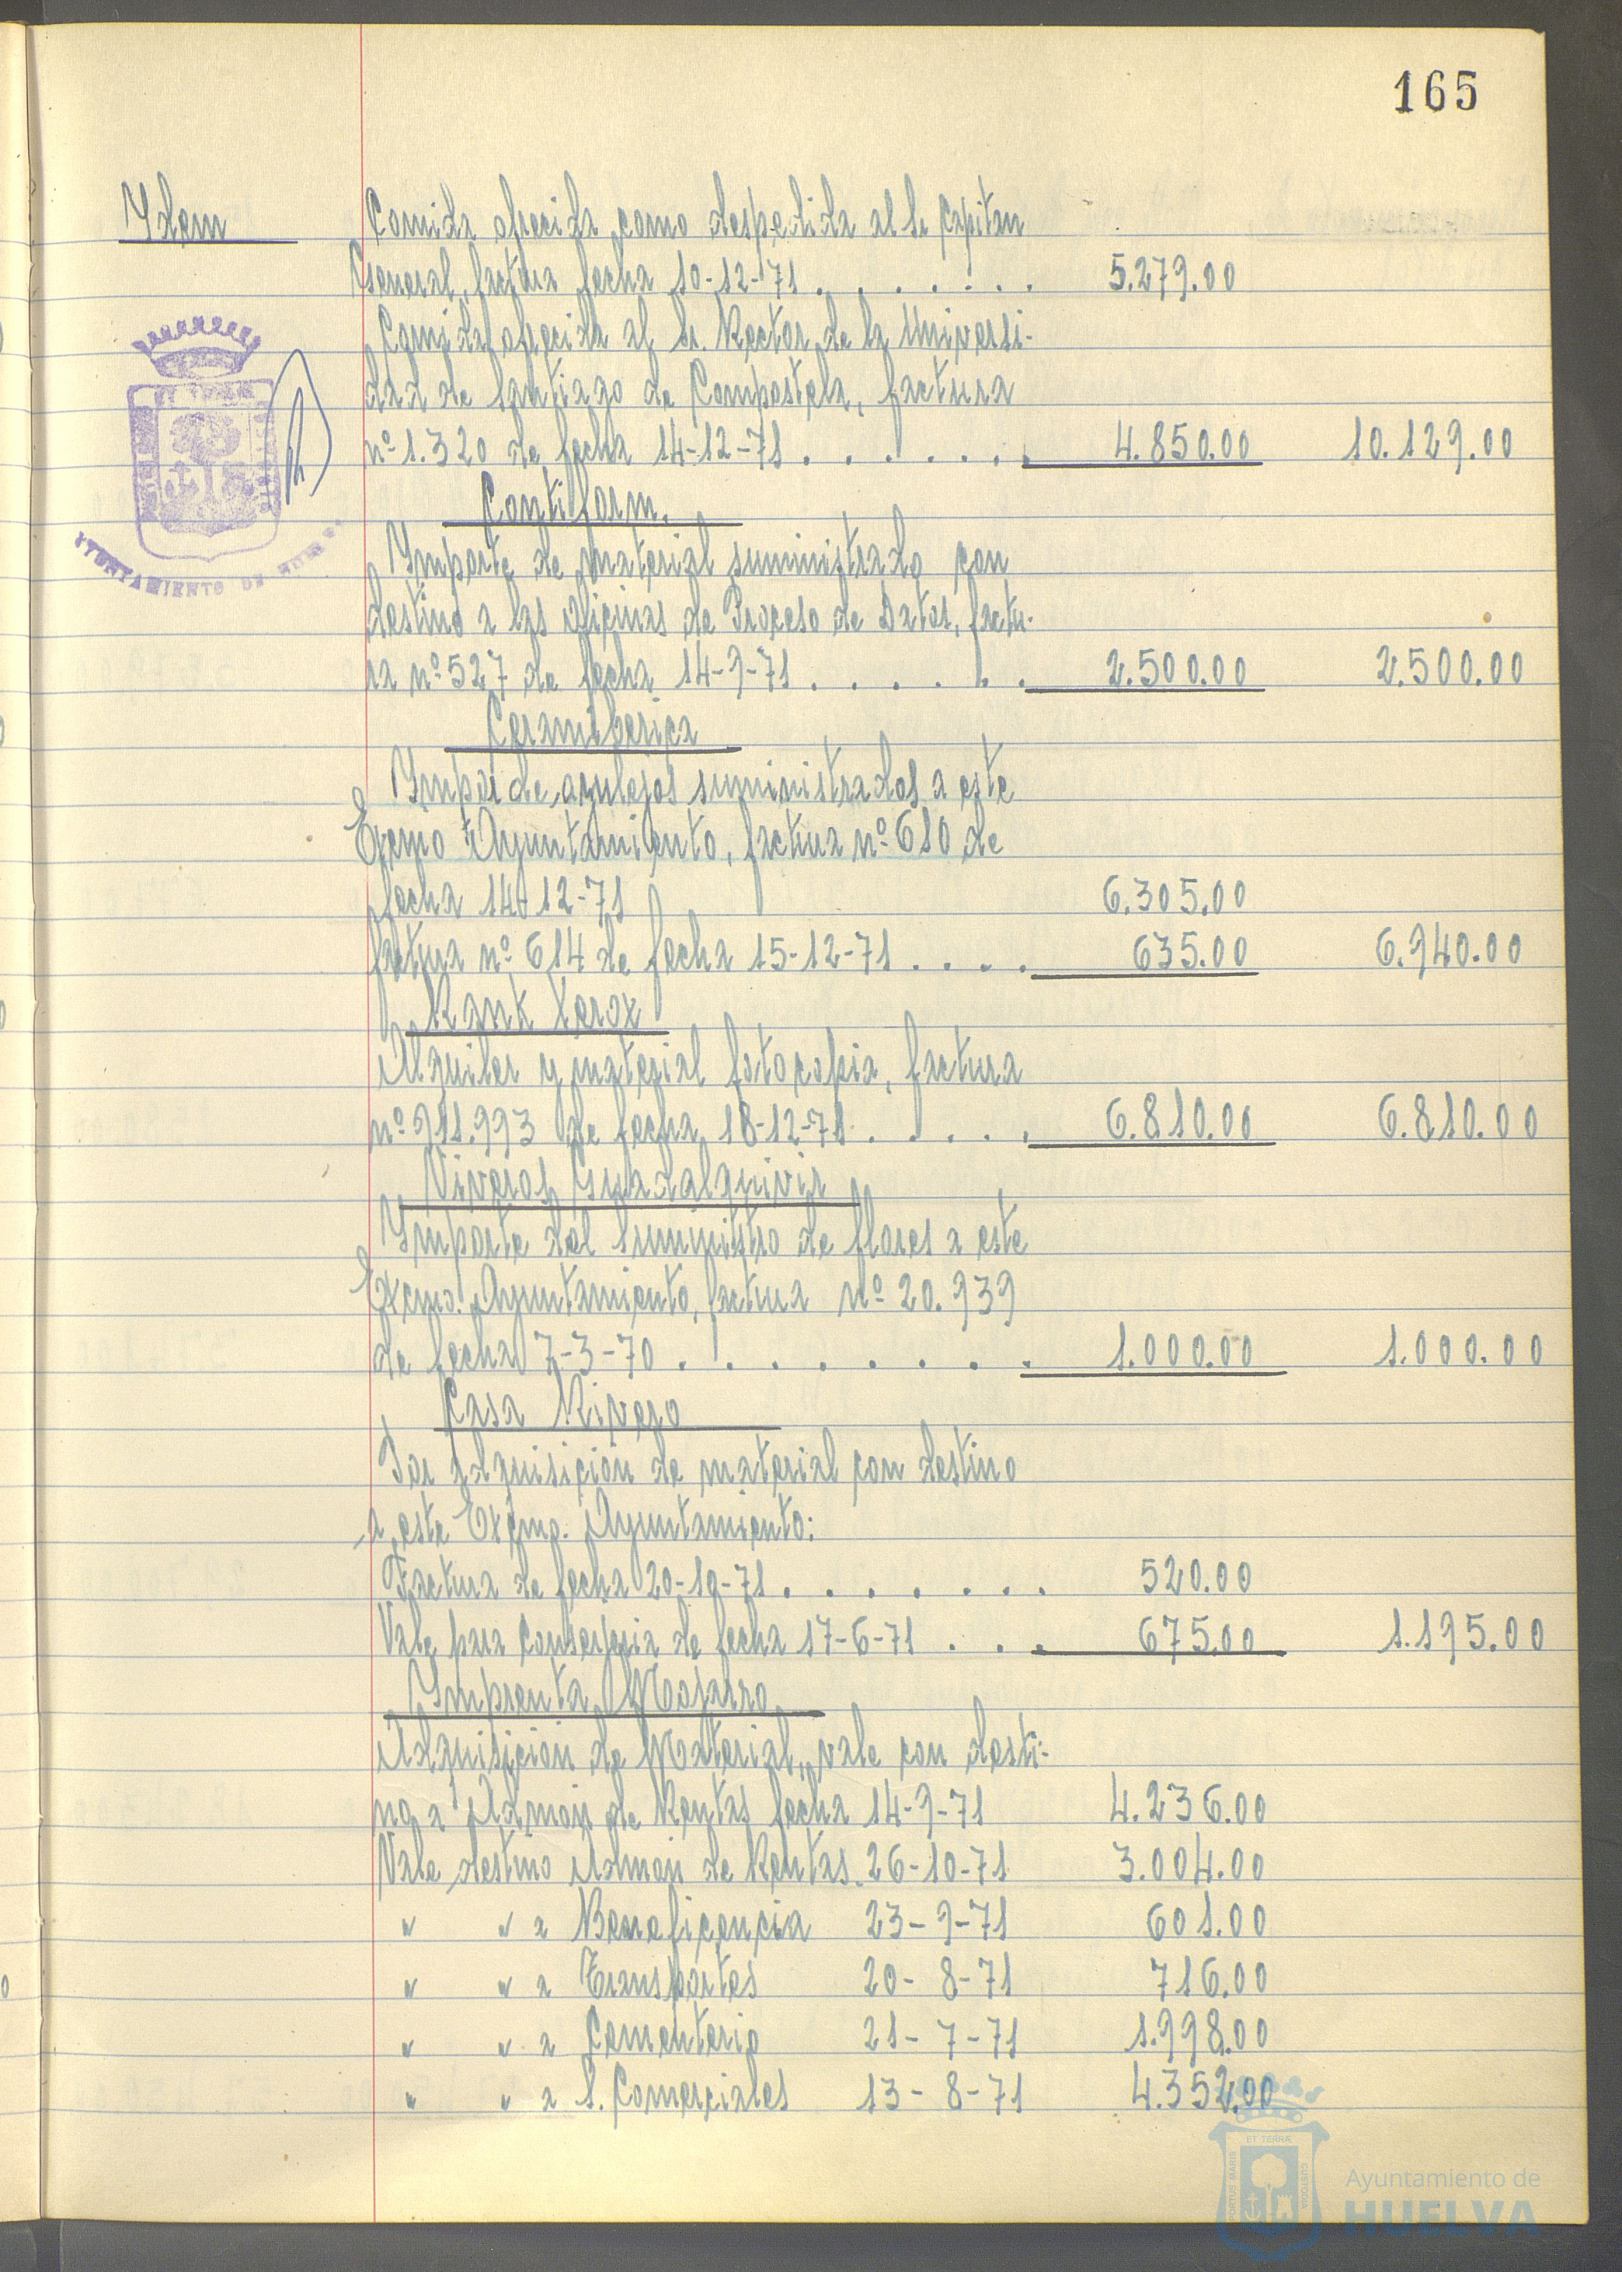 165
Idem Comida ofrecida como despedida al Sr. Capitan
General, factura fecha 10-12-71 . . . . . . . 5.279.00
Comida ofrecida al Sr. Rector de la Universi-
dad de Santiago de Compostela, factura
nº 1.320 de fecha 14-12-71 . . . . . . . 4.850.00 10.129.00
Contiform.
Importe de material suministrado con
destino a las oficinas de Proceso de Datos, factu-
ra nº 527 de fecha 14-9-71 . . . . . . 2.500.00 2.500.00
Ceramiberica
de azulejos suministrados a este
Excmo Ayuntamiento, factura nº 610 de
fecha 14-12-71 6.305.00
factura nº 614 de fecha 15-12-71 . . . . 635.00 6.940.00
Rank Xerox
Alquiler y material fotocopia, factura
nº 911.993 de fecha 18-12-71 . . . . . 6.810.00 6.810.00
Viveros Guadalquivir
Importe del suministro de flores a este
Excmo. Ayuntamiento, factura nº 20.939
de fecha 7-3-70 . . . . . . . . 1.000.00 1.000.00
Casa Rivero
Por adquisición de material con destino
a este Excmo. Ayuntamiento:
Factura de fecha 20-10-71 . . . . . . . 520.00
Vale para Conserjeria de fecha 17-6-71 . . . 675.00 1.195.00
Imprenta Mojarro
Adquisición de Material, vale con desti-
no a Admon de Rentas fecha 14-9-71 4.236.00
Vale destino Admon de Rentas 26-10-71 3.004.00
" " a Beneficencia 23-9-71 601.00
" " a Transportes 20-8-71 716.00
" " a Cementerio 21-7-71 1.998.00
" " a S. Comerciales 13-8-71 4.352.00
AYUNTAMIENTO DE HUELVA
PORTUS MARIS
ET TERRÆ
CUSTODIA
Ayuntamiento de
HUELVA